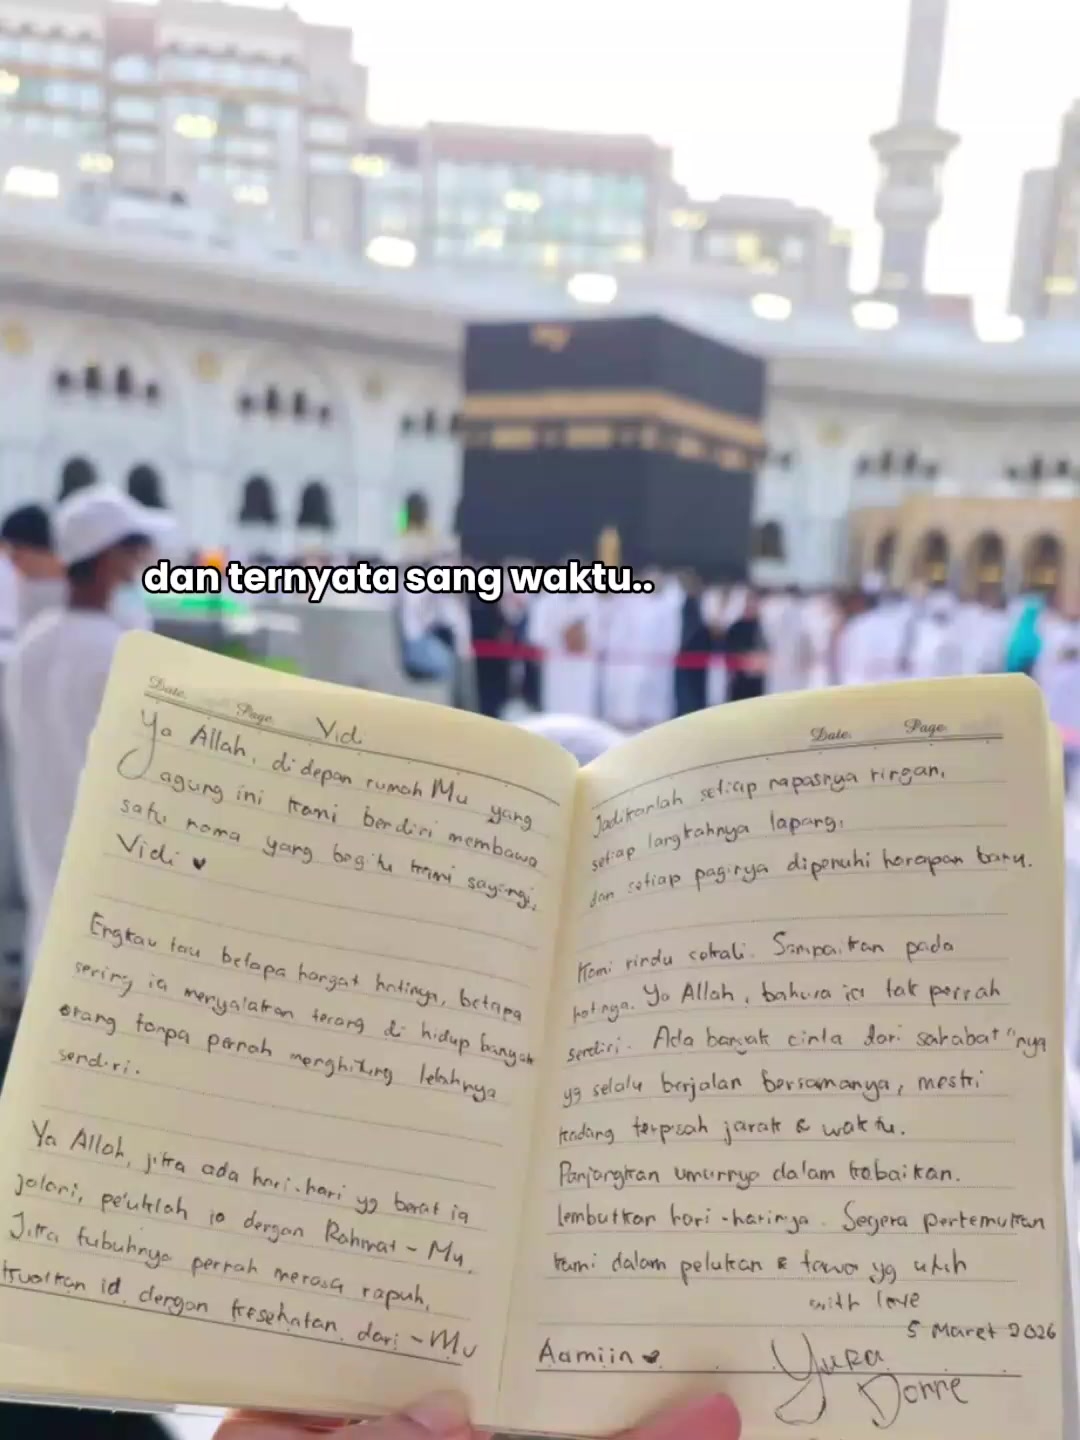 dan ternyata sang waktu..
Date. Page. Vidi
Ya Allah, di depan rumah Mu yang
agung ini kami berdiri membawa
satu nama yang begitu kami sayangi,
Vidi ♥
Engkau tau betapa hangat hatinya, betapa
sering ia menyalakan terang di hidup banyak
orang tanpa pernah menghitung lelahnya
sendiri.
Ya Allah, jika ada hari-hari yg berat ia
jalani, peluklah ia dengan Rahmat-Mu.
Jika tubuhnya pernah merasa rapuh,
kuatkan ia dengan kesehatan dari-Mu
Date. Page.
Jadikanlah setiap napasnya ringan,
setiap langkahnya lapang,
dan setiap paginya dipenuhi harapan baru.
Kami rindu sekali. Sampaikan pada
hatinya. Ya Allah, bahwa ia tak pernah
sendiri. Ada banyak cinta dari sahabat"nya
yg selalu berjalan bersamanya, meski
kadang terpisah jarak & waktu.
Panjangkan umurnya dalam kebaikan.
lembutkan hari-harinya. Segera pertemukan
kami dalam pelukan & tawa yg utuh
with love
5 Maret 2026
Aamiin ♥
Yura